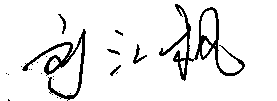 刘江枫